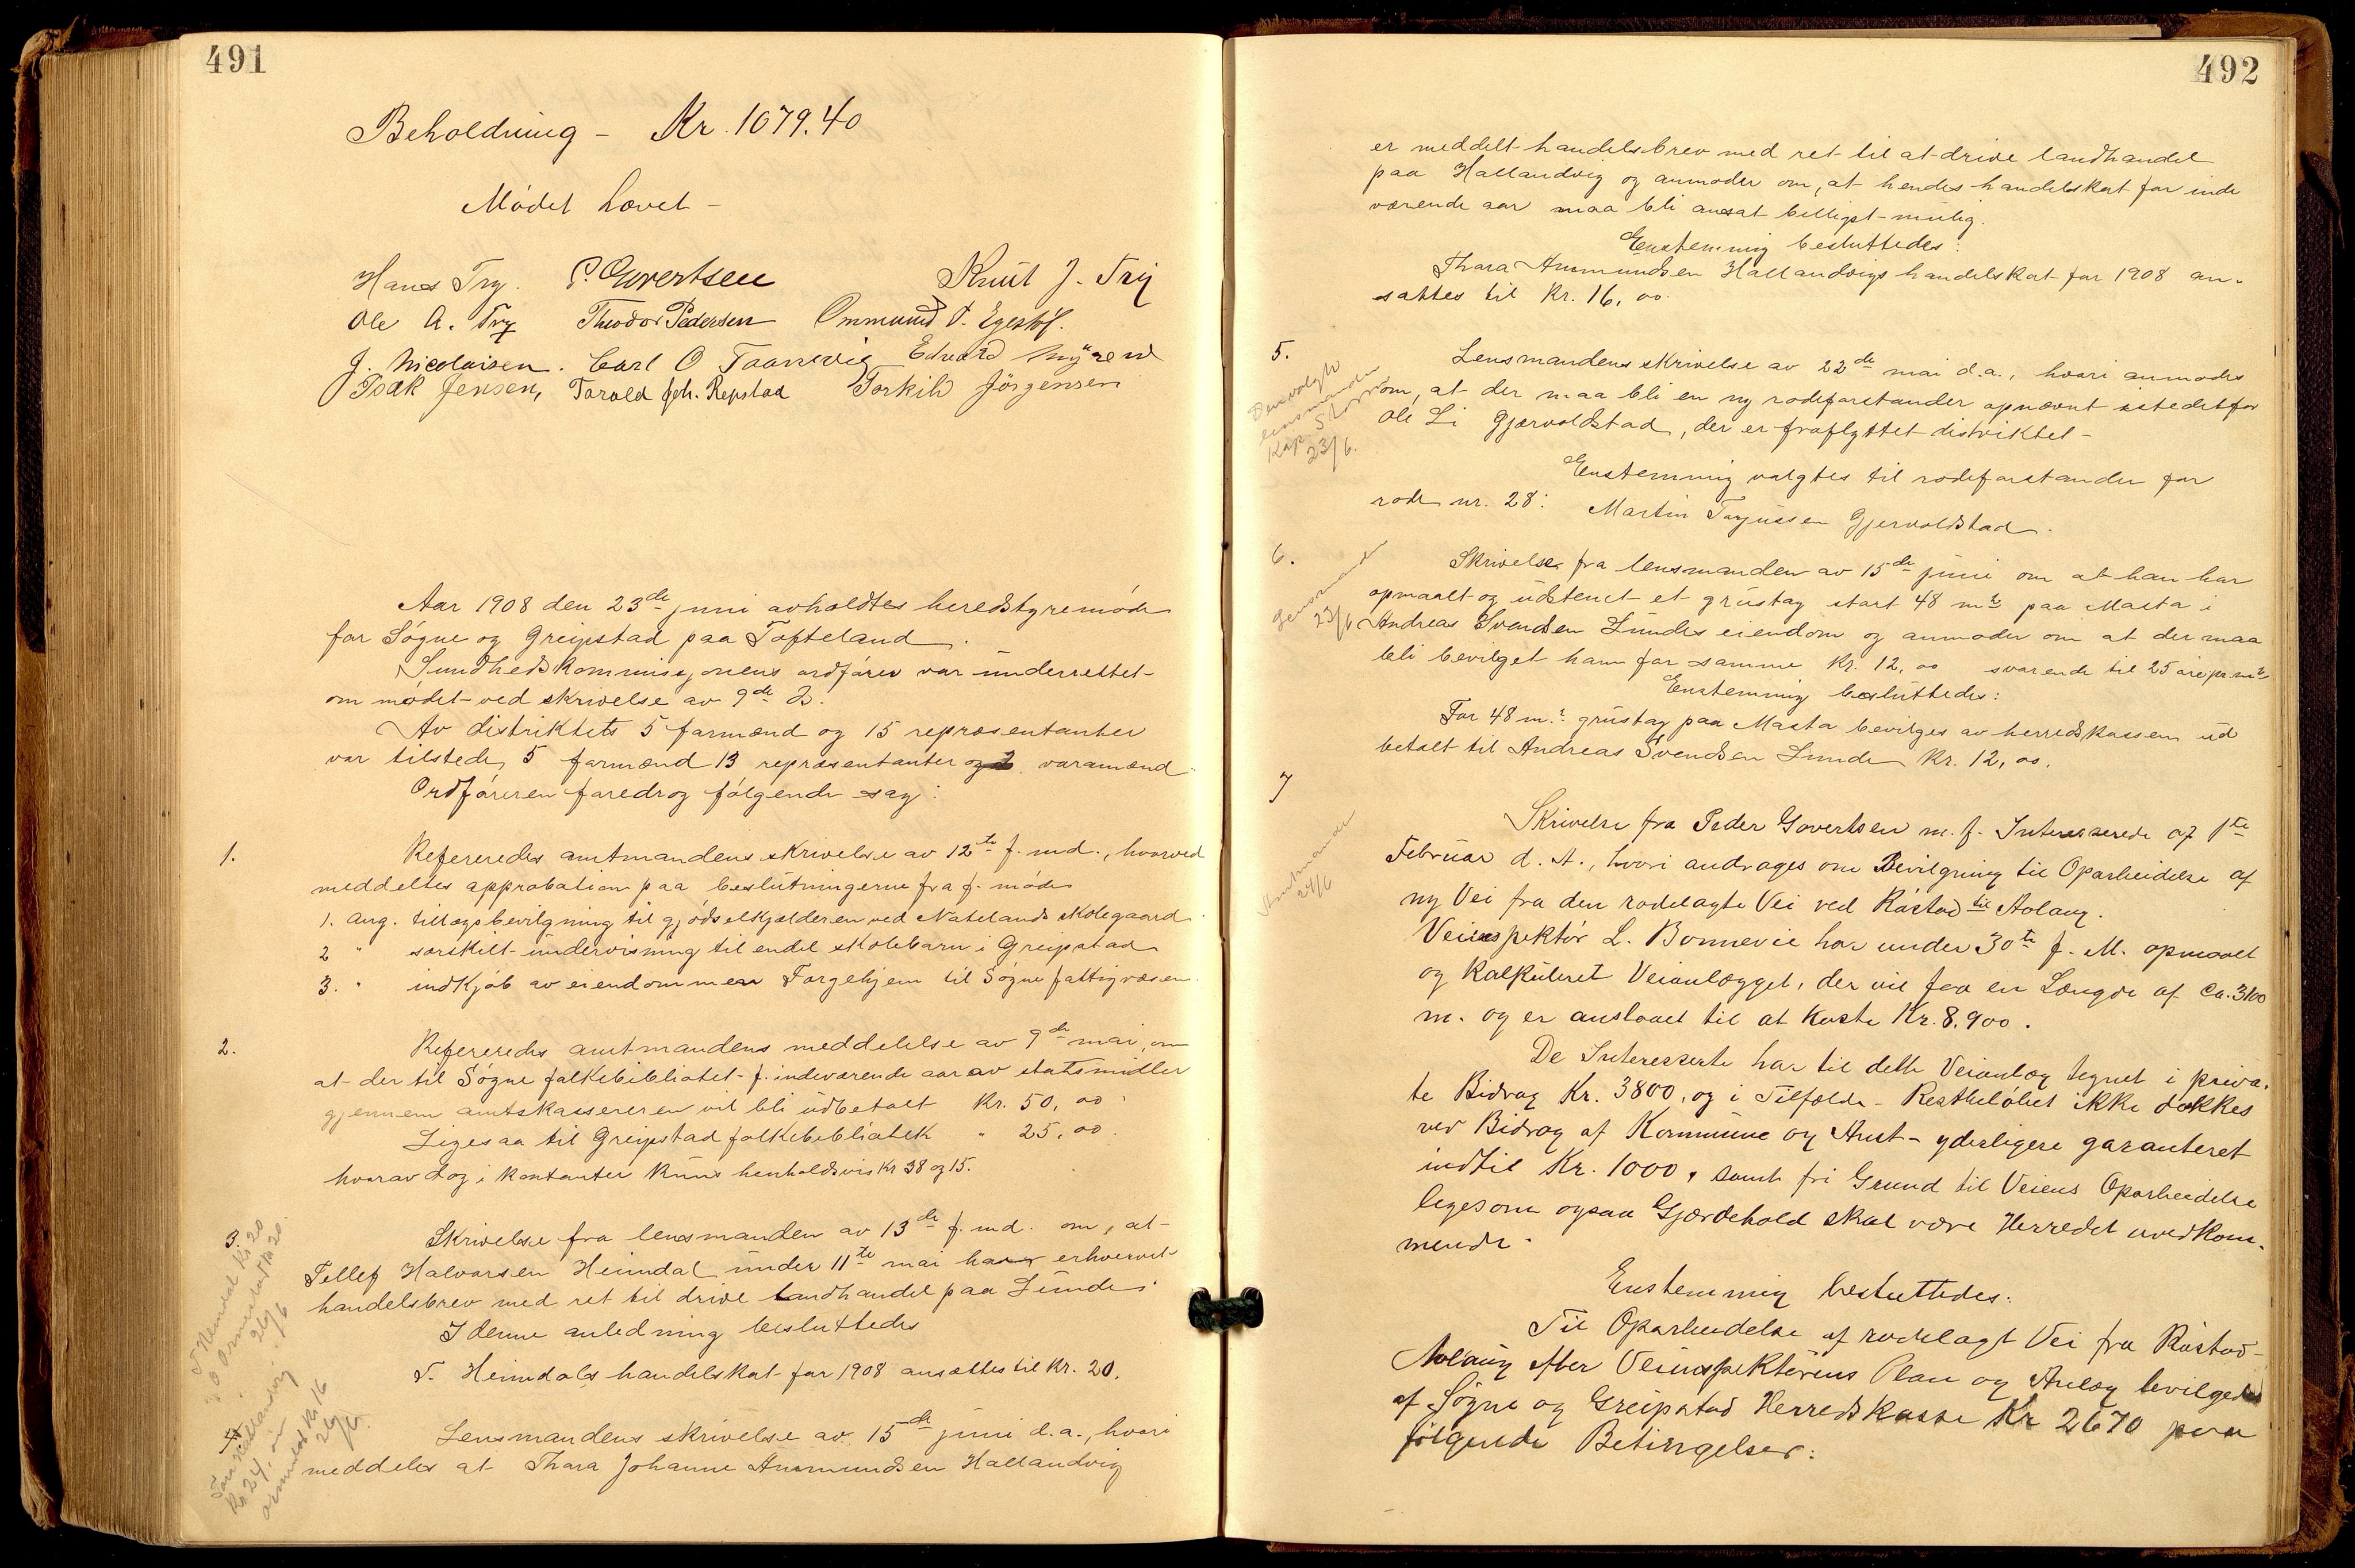 491
Beholdning - Kr. 1079.40
Mødet hævet -
Hans Try. P. Govertsen Knut J. Try
Ole A. Try Theodor Pedersen Ommund T. Egestøl.
J. Nicolaisen. Carl O Taanevig Edvard Myren
Isak Jensen, Tarald Joh. Repstad Torkild Jörgensen
Aar 1908 den 23de juni avholdtes heredstyremöde
for Søgne og Greipstad paa Tofteland.
Sundhedskommisjonens ordfører var underrettet
om mødet ved skrivelse av 9de ds.
Av distriktets 5 formænd og 15 repræsentanter
var tilstede 5 formænd 13 repræsentanter og 2 varamænd.
Ordføreren foredrog følgende sag:
1. Refereredes amtmandens skrivelse av 12te f. md., hvorved
meddeltes approbation paa beslutningerne fra f. møde
1. ang. tillægsbevilgning til gjødselkjælderen ved Natelands skolegaard
2 " særskilt undervisning til endel skolebarn i Greipstad
3. " indkjøb av eiendommen Fargehjem til Søgne fattigvæsen
2. Refereredes amtmandens meddelelse av 9de mai, om
at der til Søgne folkebibliotek f. indeværende aar av statsmidler
gjennem amtskassereren vil bli udbetalt Kr. 50,00.
Ligesaa til Greipstad folkebibliotek " 25,00.
hvorav dog i kontanter kuns henholdsvis Kr 38 og 15.
3. Skrivelse fra lensmanden av 13de f. md. om, at
Tellef Halvorsen Heimdal under 11te mai har erhvervet
handelsbrev med ret til drive landhandel paa Lunde.
I denne anledning besluttedes
T. Heimdals handelskat for 1908 ansættes til Kr. 20.
T Heimdal Kr 20
26/6
4 Lensmandens skrivelse av 15de juni d.a., hvori
meddeles at Thara Johanne Ammundsen Hallandvig
Kr. 24. om
Kr. 16
26/6
492
er meddelt handelsbrev med ret til at drive landhandel
paa Hallandvig og anmoder om, at hendes handelskat for inde
værende aar maa bli ansat billigst mulig.
Enstemmig besluttedes:
Thara Ammundsen Hallandvigs handelskat for 1908 an-
sattes til Kr. 16,00.
5. Lensmandens skrivelse av 22de mai d.a., hvori anmodes
om, at der maa bli en ny rodeforstander opnævnt istedetfor
Ole Li Gjærvoldstad, der er fraflyttet distriktet -
Den valgte
lensmanden
23/6.
Enstemmig valgtes til rodeforstander for
rode nr. 28: Martin Torjussen Gjervoldstad.
6. Skrivelse fra lensmanden av 15de juni om at han har
opmaalt og udstenet et grustag stort 48 m2 paa Masta i
Andreas Svendsen Lundes eiendom og anmoder om at der maa
bli bevilget ham for samme Kr. 12,00 svarende til 25 øre pr. m2
Lensmanden
23/6
Enstemmig besluttedes:
For 48 m.2 grustag paa Masta bevilges av herredskassen ud
betalt til Andreas Svendsen Lunde Kr. 12,00.
7
Skrivelse fra Peder Govertsen m. f. Interesserede af 1te
Februar d. A., hvori andrages om Bevilgning til Oparbeidelse af
ny Vei fra den rodelagte Vei ved Råstad til Aolaug.
Amtmanden
24/6
Veiinspektör L. Bonnevie har under 30te f. M. opmaalt
og kalkuleret Veianlægget, der vil faa en Længde af ca. 3100
m. og er anslaaet til at koste Kr. 8,900.
De Interesserte har til dette Veianlæg tegnet i priva-
te Bidrag Kr. 3800, og i Tilfælde Restbeløbet ikke dækkes
ved Bidrag af Kommune og Amt - yderligere garanteret
indtil Kr. 1000, samt fri Grund til Veiens Oparbeidelse
ligesom ogsaa Gjærdehold skal være Herredet uvedkom-
mende.
Enstemmig besluttedes:
Til Oparbeidelse af rodelagt Vei fra Råstad-
Aolaug efter Veiinspektörens Plan og Anlæg bevilgedes
af Søgne og Greipstad Herredskasse Kr 2670 paa
følgende Betingelser: